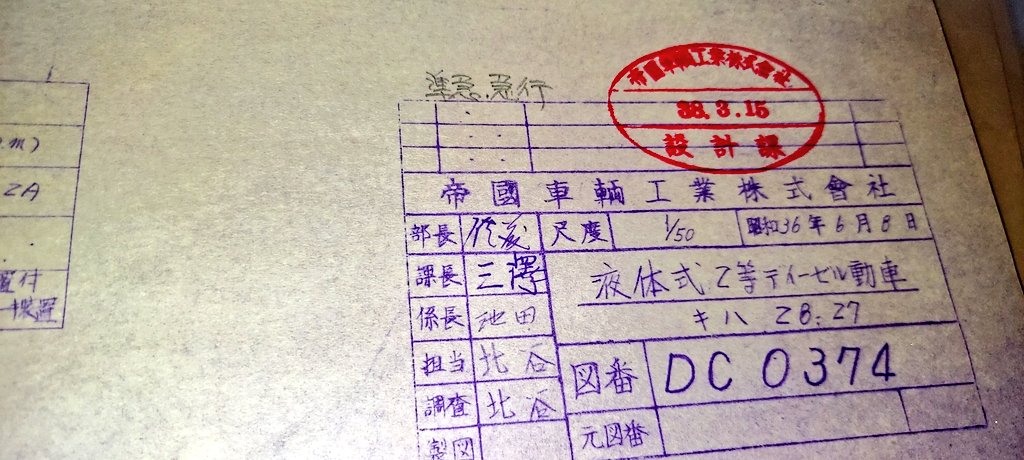 準急.急行
帝國車輛工業株式會社
38.3.15
設計課
帝國車輛工業株式會社
部長
尺度 1/50 昭和36年6月8日
課長 三澤
液体式2等ディーゼル動車
係長 池田
キハ 28.27
担当 北谷
図番 DC 0374
調査 北谷
元図番
製図
m)
2A
置付
装置